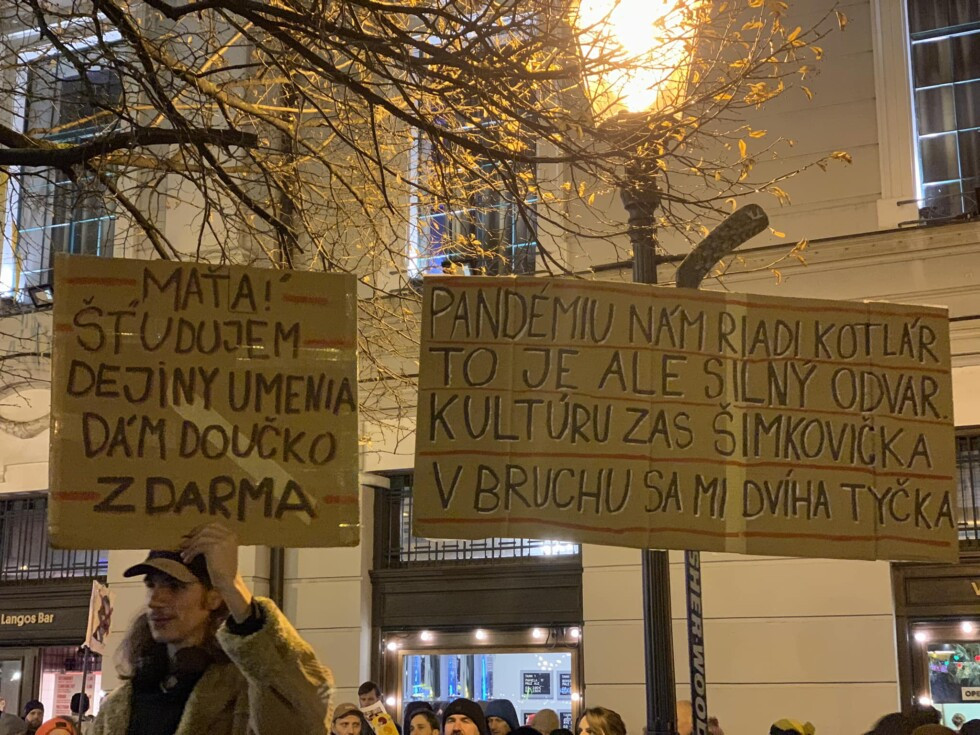 MAŤA!
ŠTUDUJEM
DEJINY UMENIA
DÁM DOUČKO
ZDARMA
PANDÉMIU NÁM RIADI KOTLÁR
TO JE ALE SILNÝ ODVAR.
KULTÚRU ZAS ŠIMKOVIČKA
V BRUCHU SA MI DVÍHA TYČKA
Langos Bar
SHER-WOOD
OPE